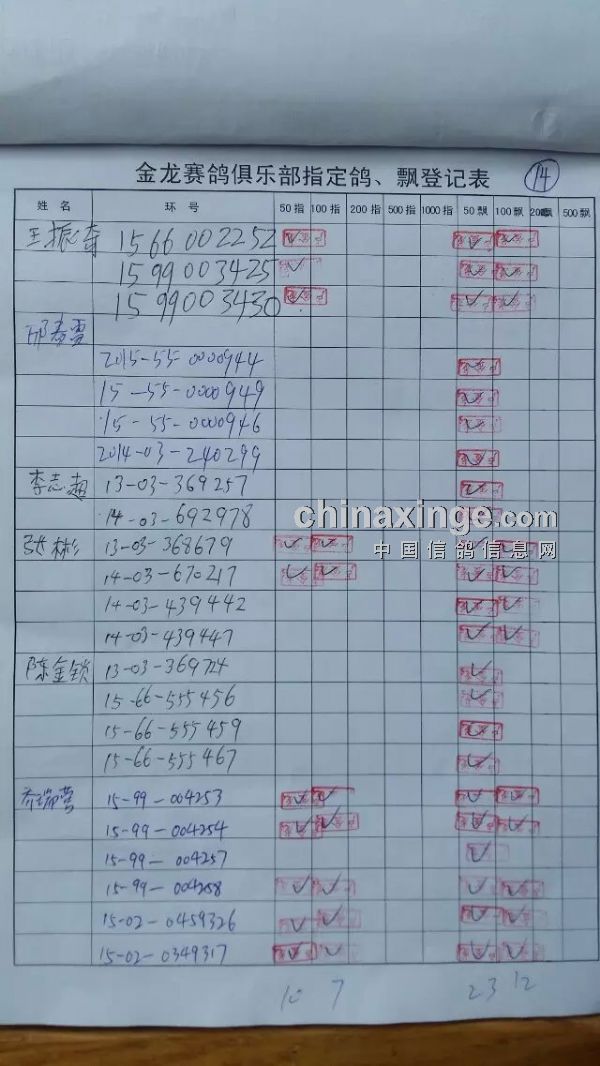 金龙赛鸽俱乐部指定鸽、飘登记表 14
姓名 环号 50指 100指 200指 500指 1000指 50飘 100飘 200飘 500飘
王振 1566002252
1599003425
1599003430
2015-55-0000944
15-55-0000949
15-55-0000946
2014-03-240299
李志超 13-03-369257
14-03-692978
chinaxinge.com
张彬 13-03-368679
中国信鸽信息网
14-03-670217
14-03-439442
14-03-439447
陈金锁 13-03-369724
15-66-555456
15-66-555459
15-66-555467
乔瑞 15-99-004253
15-99-004254
15-99-004257
15-99-004258
15-02-0459326
15-02-0349317
10 7 23 12